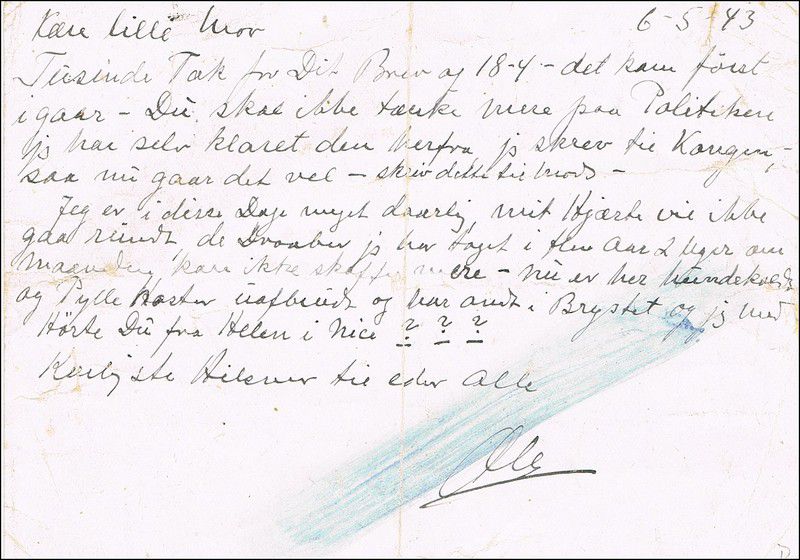 6-5-43
Kære lille Mor
Tusinde Tak for Dit Brev og 18-4 - det kom først
i gaar - Du skal ikke tænke mere paa Politiken
jg har selv klaret den herfra, jg skrev til Kongen, -
saa nu gaar det vel - skriv dette til Mods -
Jeg er i disse Dage meget daarlig, mit Hjærte vil ikke
gaa rundt, de Draaber jg har taget i flere Aar 2 Uger om
Maaneden, kan ikke skaffes mere - nu er her hundekoldt
og Pylle hoster uafbrudt og har ondt i Brystet og jg med
Hørte Du fra Helen i Nice ? ? ?
Kærligste Hilsner til eder alle